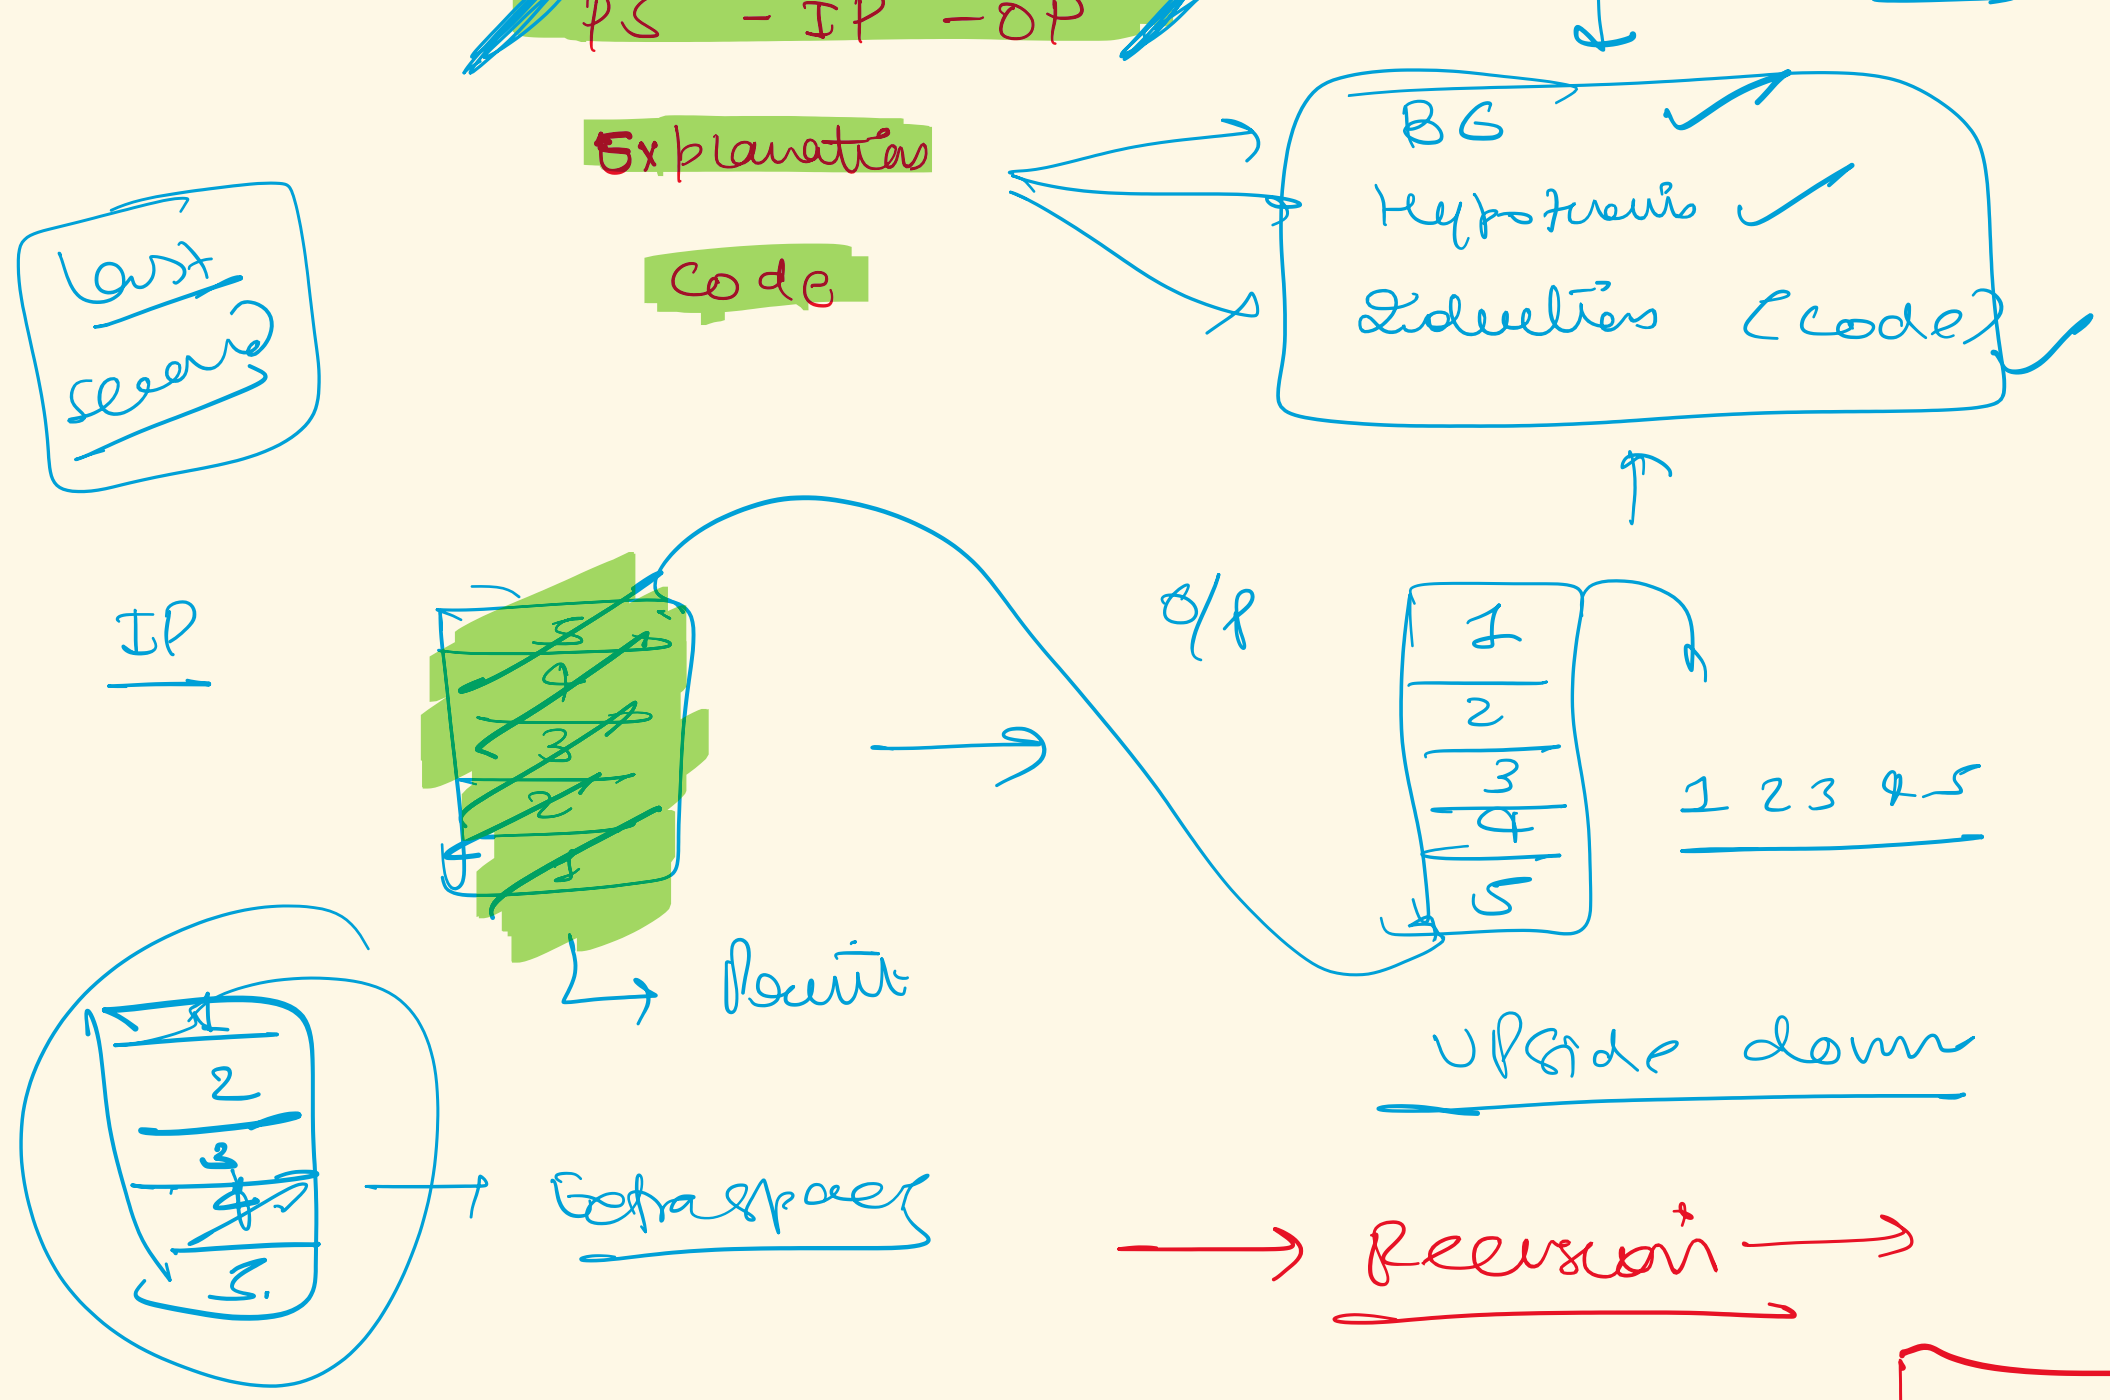 PS - IP - OP
Explanation
Code
BG
Hypothesis
Induction (Code)
Last
second
IP
5
4
3
2
1
O/P
1
2
3
4
5
1 2 3 4 5
Print
Upside down
1
2
3
4
5.
Extraspace
Recursion